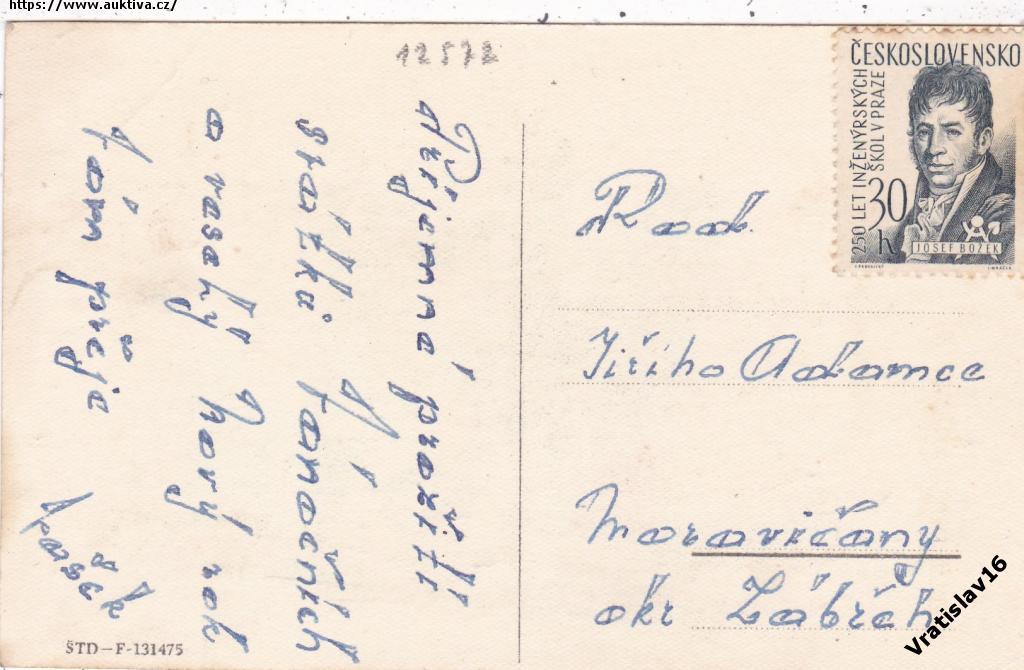 https://www.auktiva.cz/
12572
Příjemné prožití
svátků Vánočních
a veselý Nový rok
Vám přeje
ČESKOSLOVENSKO
250 LET INŽENÝRSKÝCH
ŠKOL V PRAZE
30
h
JOSEF BOŽEK
Rod.
Jiřího Adamce
Moravičany
okr Zábřeh
ŠTD-F-131475
Vratislav16